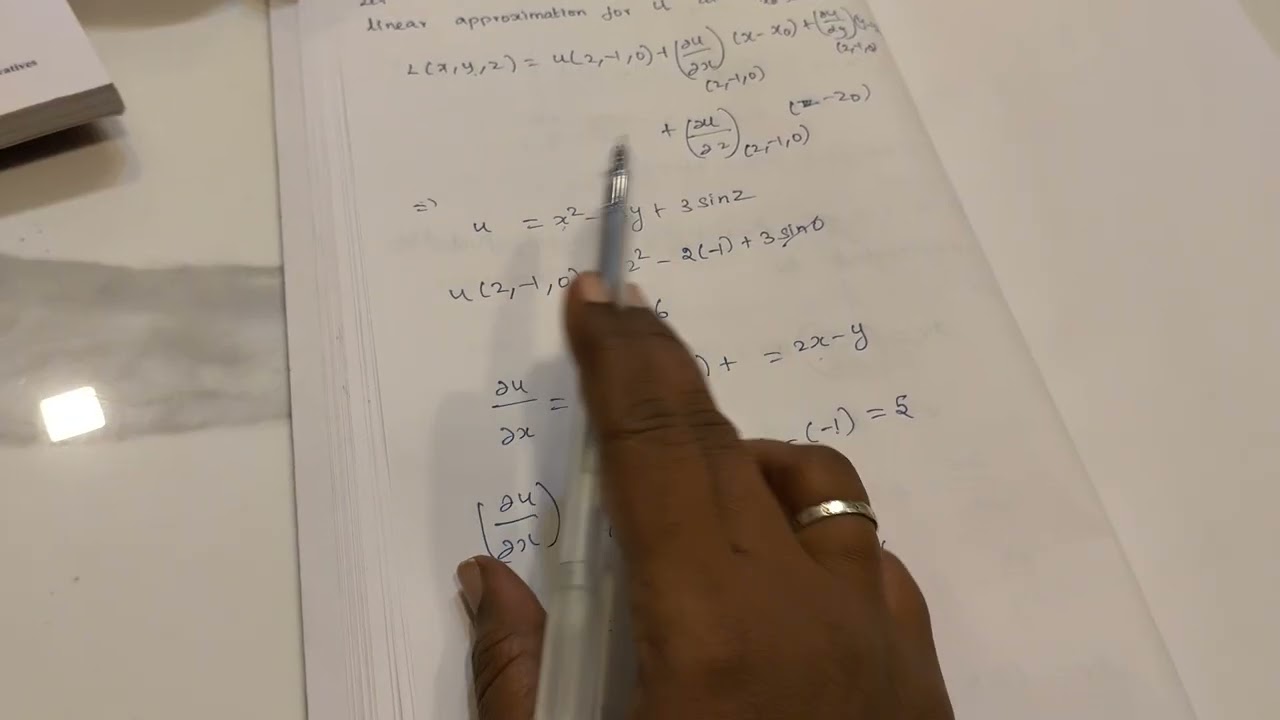 linear approximation for u
L(x,y,z) = u(2,-1,0) + (∂u/∂x)(2,-1,0) (x-x0) + (∂u/∂y)(2,-1,0)
+ (∂u/∂z)(2,-1,0) (z-z0)
=>
u = x² - y + 3 sin z
u(2,-1,0) 2² - 2(-1) + 3 sin 0
6
∂u/∂x = ) + = 2x-y
(∂u/∂x) -(-1) = 5
atives